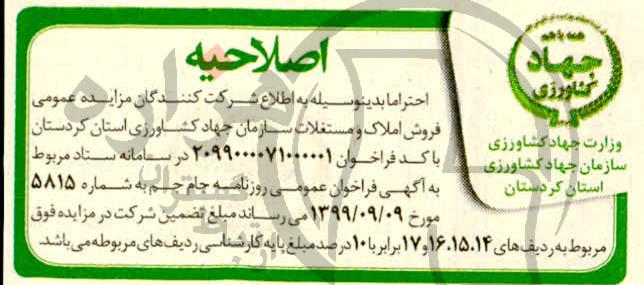 اصلاحیه
همه با هم
جهاد
کشاورزی
وزارت جهاد کشاورزی
سازمان جهاد کشاورزی
استان کردستان
احتراما بدینوسیله به اطلاع شرکت کنندگان مزایده عمومی
فروش املاک و مستغلات سازمان جهاد کشاورزی استان کردستان
با کد فراخوان ۲۰۹۹۰۰۰۰۷۱۰۰۰۰۰۱ در سامانه ستاد مربوط
به آگهی فراخوان عمومی روزنامه جام جم به شماره ۵۸۱۵
مورخ ۱۳۹۹/۰۹/۰۹ می رساند مبلغ تضمین شرکت در مزایده فوق
مربوط به ردیف های ۱۶،۱۵،۱۴و۱۷ برابر با ۱۰درصد مبلغ پایه کارشناسی ردیف های مربوطه می باشد.